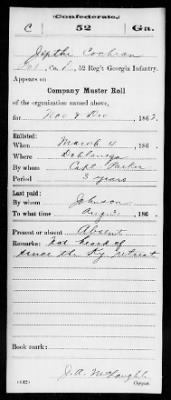 Confederate.
C 52 Ga.
Jepthe Cochran
, 52 Reg't Georgia Infantry.
Appears on
Company Muster Roll
of the organization named above,
for Nov & Dec , 1862.
Enlisted:
When March 4 , 186
Where Dahlonega
By whom Capt Parker
Period 3 years
Last paid:
By whom Johnson
To what time Aug 31 , 186
Present or absent Absent
Remarks: Not heard of
since the Ky retreat
Book mark:
J. A. McLaughl
(642) Copyist.